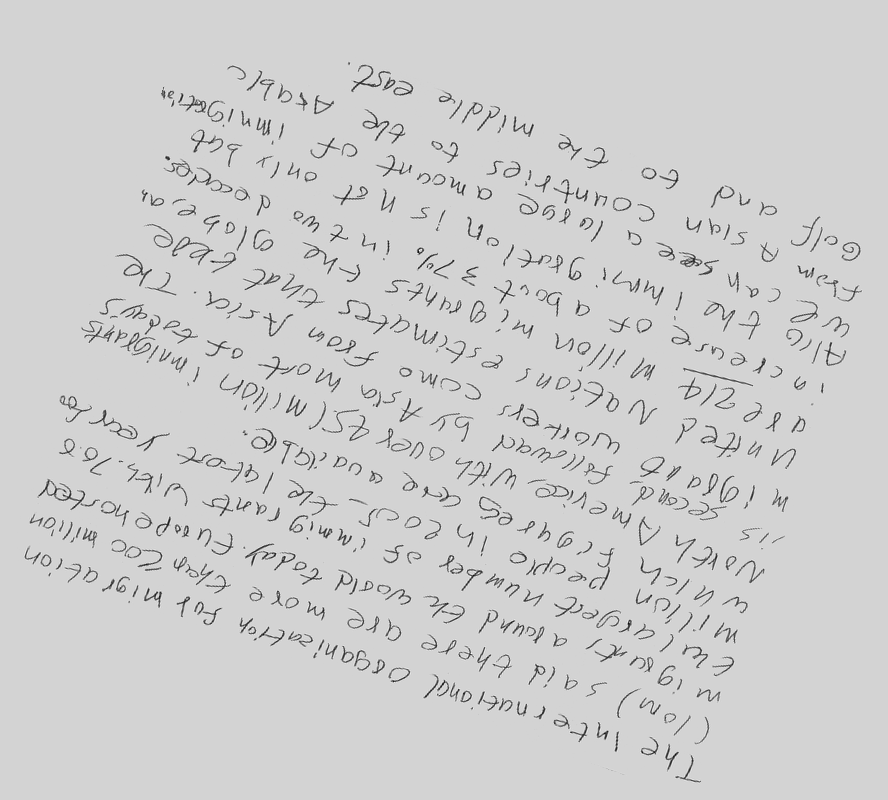 The International Organization for migration
(IOM) said there are more than 200 million
migrants around th would today. Europe hosted
the largest number of immigrants with 70.6
million people in 2005 - the latest year for
which figures are available.
North America with over 45(million immigrants
is second followad by Asia most of today's
migrant workers como from Asia. The
United Nations estimates that there
are 214 million migrants the globe, an
increase of about 37% in two decades.
Also the immigration is not only but
we can see a large amount of immigration
from Asian countries to the Arabic
Golf and to the middle east.